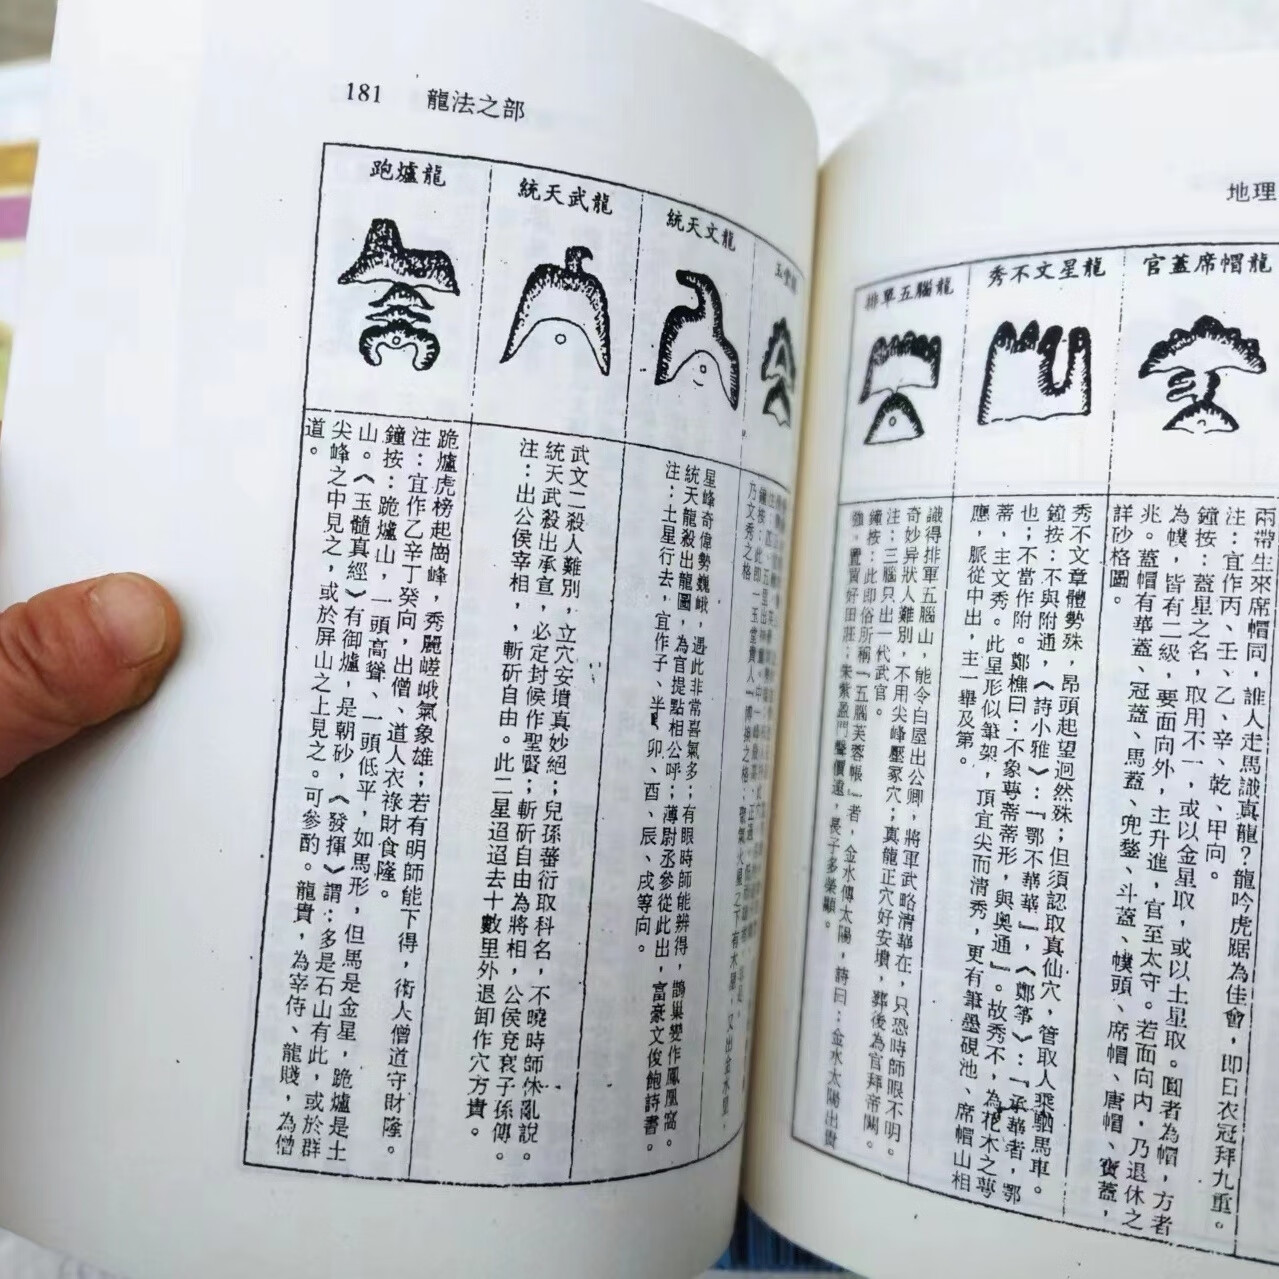 地理
官蓋席帽龍
兩帶生來席帽同，誰人走馬識真龍？龍吟虎踞為佳會，即日衣冠拜九重。
注：宜作丙、壬、乙、辛、乾、甲向。
鐘按：蓋星之名，取用不一，或以金星取，或以土星取。圓者為帽，方者
為幞，皆有二級，要面向外，主升進，官至太守。若面向內，乃退休之
兆。蓋帽有華蓋、冠蓋、馬蓋、兜鍪、斗蓋、幞頭、席帽、唐帽、寶蓋，
詳砂格圖。
秀不文星龍
秀不文章體勢殊，昂頭起望迥然殊；但須認取真仙穴，管取人乘駟馬車。
鐘按：不與附通，《詩小雅》：『鄂不華華』，《鄭箏》：『承華者，鄂
也；不當作附。鄭樵曰：不象萼蒂蒂形，與奧通』。故秀不，為花木之萼
蒂，主文秀。此星形似筆架，頂宜尖而清秀，更有筆墨硯池、席帽山相
應，脈從中出，主一舉及第。
排單五腦龍
識得排軍五腦山，能令白屋出公卿，將軍武略清華在，只恐時師眼不明。
奇妙异狀人難別，不用尖峰壓冢穴；真龍正穴好安墳，葬後為官拜帝闕。
注：三腦只出一代武官。
鐘按：此即俗所稱『五腦芙蓉帳』者，金水傳太陽，詩曰：金水太陽出貴
強，置買好田莊；朱紫盈門聲價遠，長子多榮顯。
181 龍法之部
玉堂
乃文秀之格
統天文龍
星峰奇偉勢巍峨，遇此非常喜氣多；有眼時師能辨得，鵲巢變作鳳凰窩。
統天龍殺出龍圖，為官提點相公呼；薄尉丞參從此出，富豪文俊飽詩書。
注：土星行去，宜作子、卯、酉、辰、戌等向。
統天武龍
武文二殺人難別，立穴安墳真妙絕；兒孫蕃衍取科名，不曉時師休亂說。
統天武殺出承宣，必定封候作聖賢；斬斫自由為將相，公侯竞袞子孫傳。
注：出公侯宰相，斬斫自由。此二星迢迢去十數里外退卸作穴方貴。
跑爐龍
跪爐虎榜起崗峰，秀麗嵯峨氣象雄；若有明師能下得，術人僧道守財隆。
注：宜作乙辛丁癸向，出僧、道人衣祿財食隆。
鐘按：跪爐山，一頭高聳、一頭低平，如馬形，但馬是金星，跪爐是土
山。《玉髓真經》有御爐，是朝砂，《發揮》謂：多是石山有此，或於群
尖峰之中見之，或於屏山之上見之。可參酌。龍貴，為宰侍、龍賤，為僧
道。